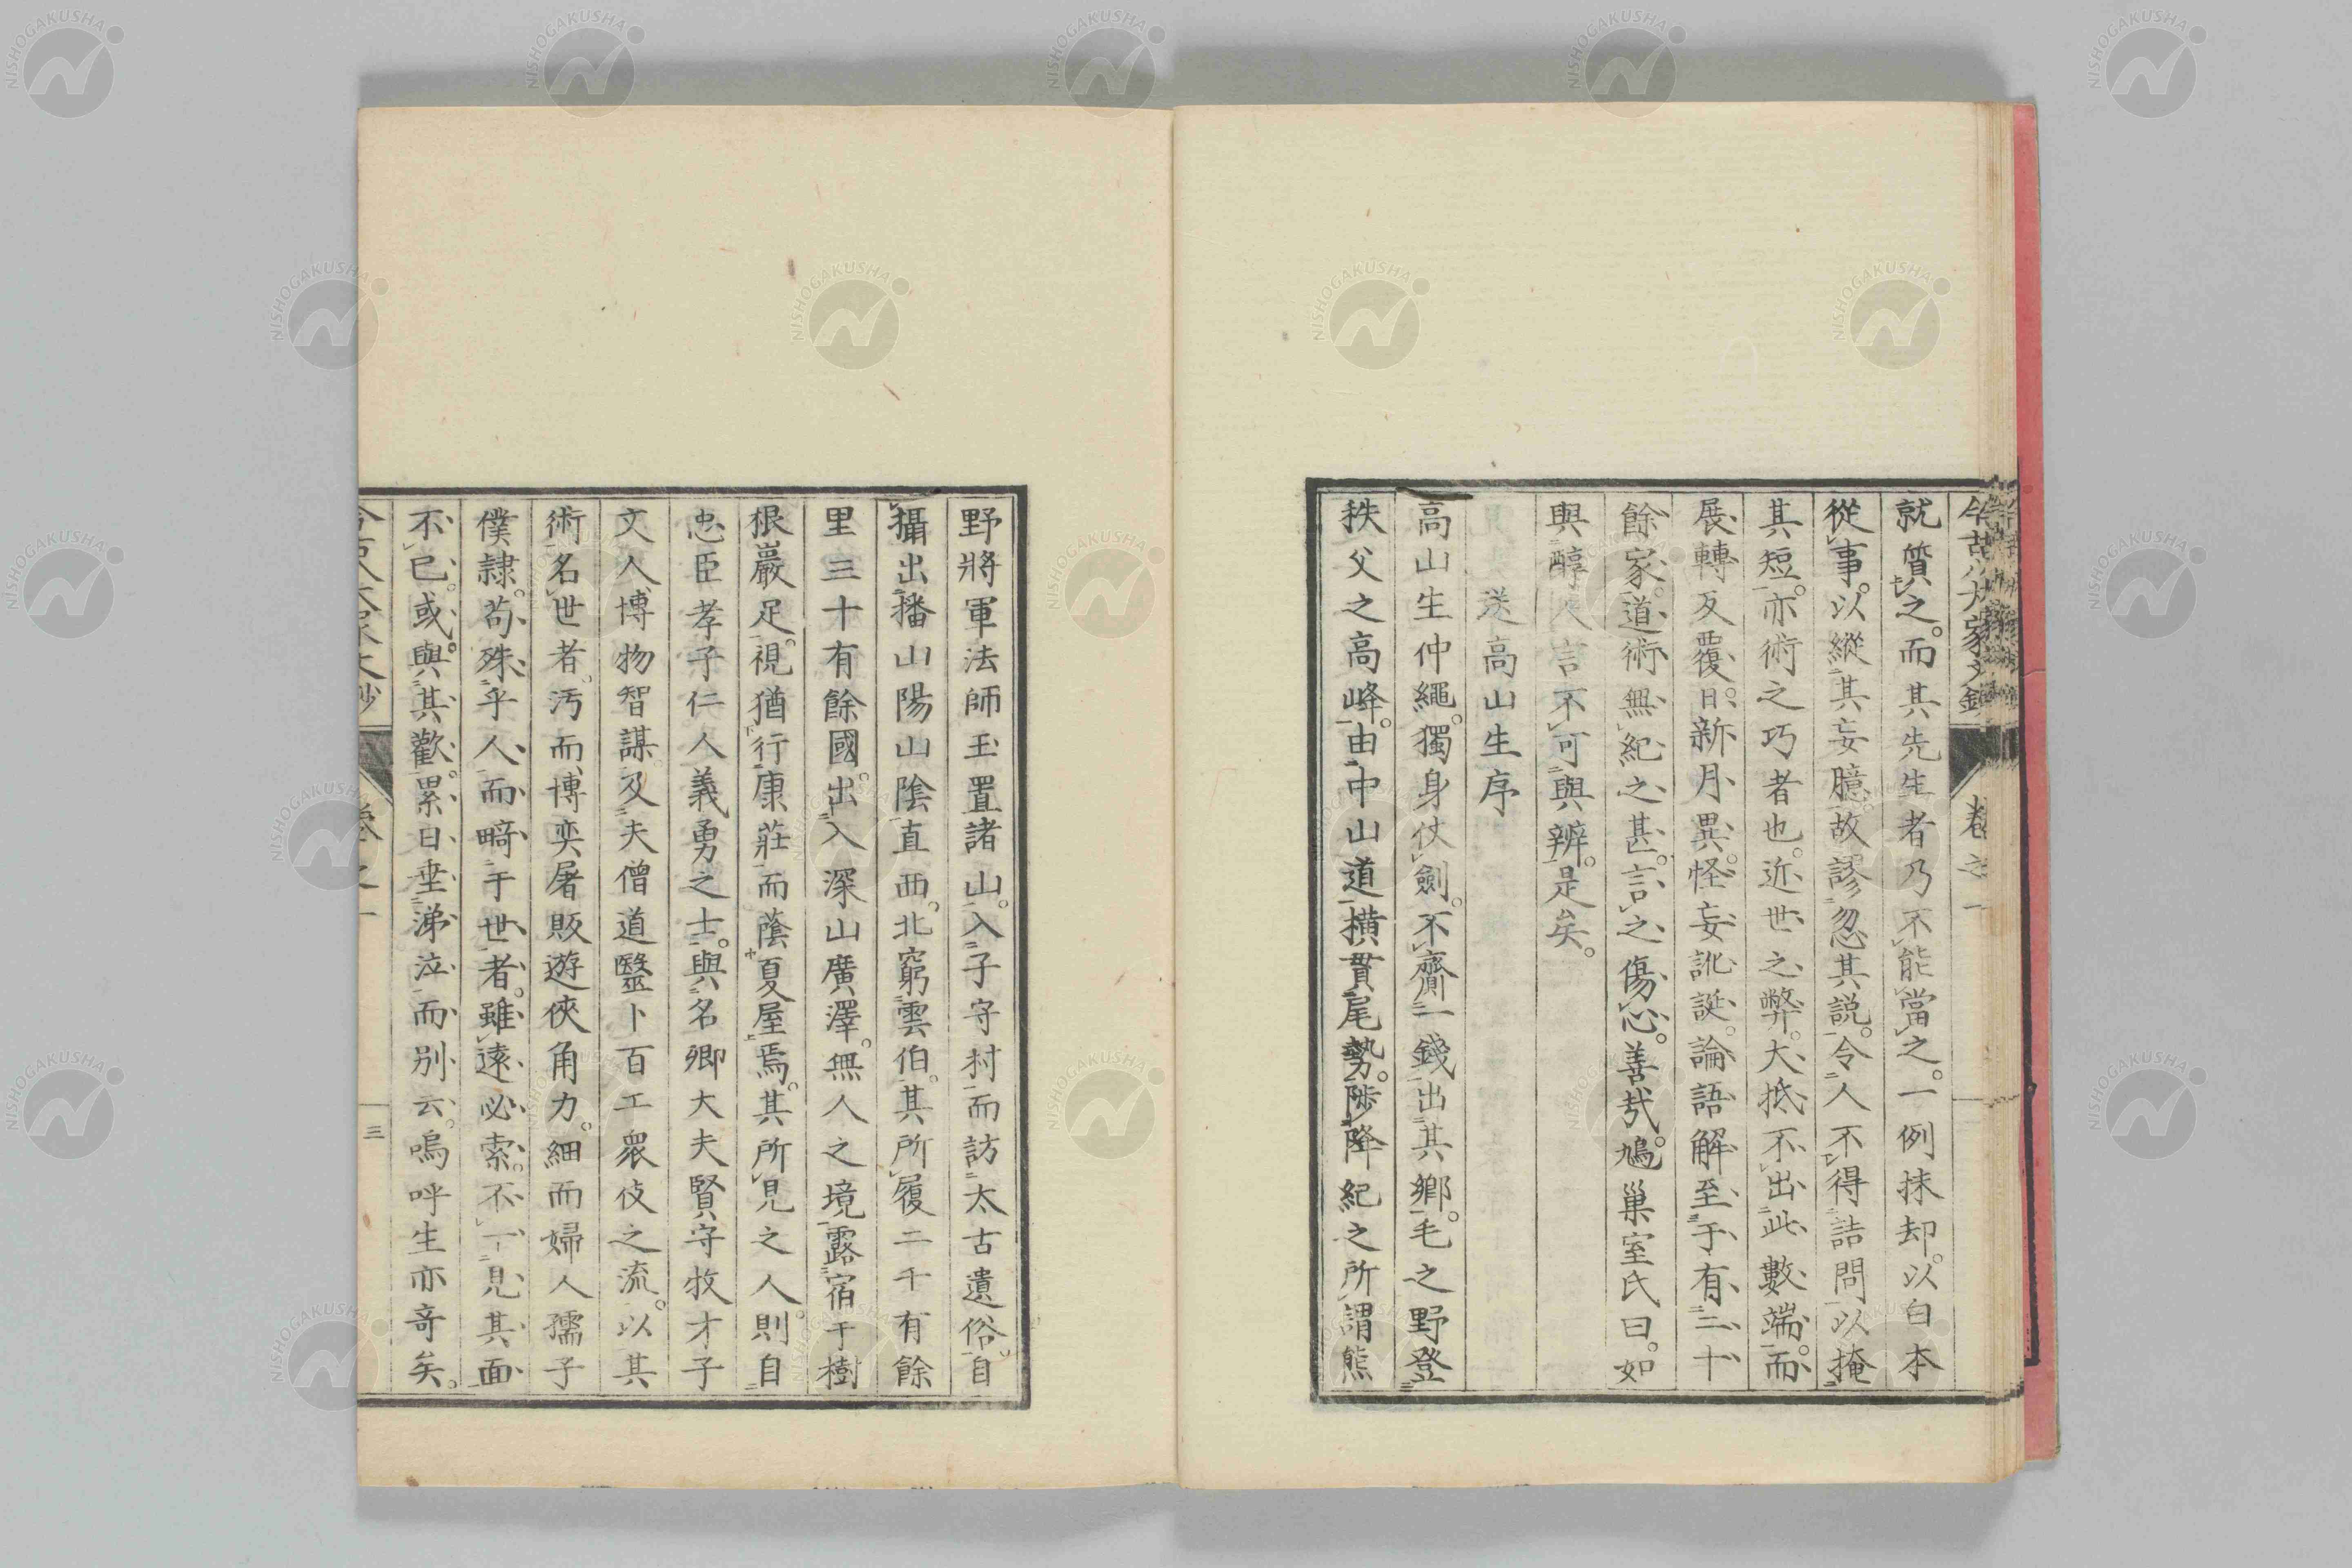 今古八大家文鈔
卷之一
就質之。而其先生者乃不能當之。一例抹却。以白本
從事。以縱其妄臆。故謬忽其説。令人不得詰問。以掩
其短。亦術之巧者也。近世之弊。大抵不出此數端。而
展轉反覆。日新月異。怪妄訛誕。論語解至于有三十
餘家。道術無紀之甚。言之傷心。善哉鳩巢室氏曰。如
與醇人言。不可與辨。是矣。
送高山生序
高山生仲繩。獨身仗劍。不齎一錢。出其鄉。毛之野登
秩父之高峰。由中山道横貫尾勢。陟降紀之所謂熊
野將軍法師玉置諸山。入子守村而訪太古遺俗。自
攝出播山陽山陰直西。北窮雲伯。其所履二千有餘
里三十有餘國。出入深山廣澤。無人之境。露宿于樹
根巖足。視猶行康莊而蔭夏屋焉。其所見之人。則自
忠臣孝子仁人義勇之士。與名卿大夫賢守牧才子
文人博物智謀。及夫僧道醫卜百工衆伎之流。以其
術名世者。汚而博奕屠販遊俠角力。細而婦人孺子
僕隷。苟殊乎人而畸于世者。雖遠必索。不一見其面
不已。或與其歡。累日垂涕泣而別云。嗚呼生亦奇矣。
三
NISHOGAKUSHA